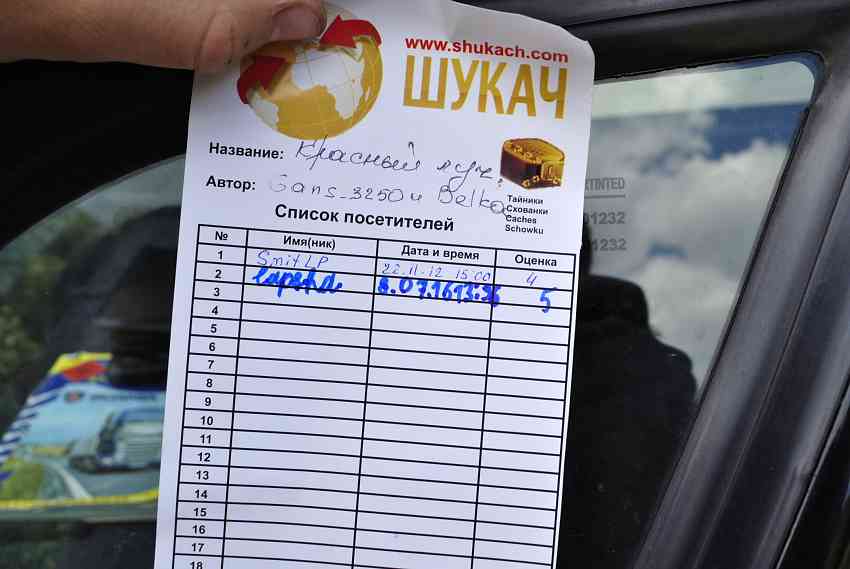 www.shukach.com
ШУКАЧ
Название: Красный луч.
Автор: Gans_3250 и Belka
Тайники
Схованки
Caches
Schowku
Список посетителей
№ Имя(ник) Дата и время Оценка
1 SmitLP 22.11.12 15:00 4
2 8.07.16 13:36 5
3
4
5
6
7
8
9
10
11
12
13
14
15
16
17
18
1232
1232